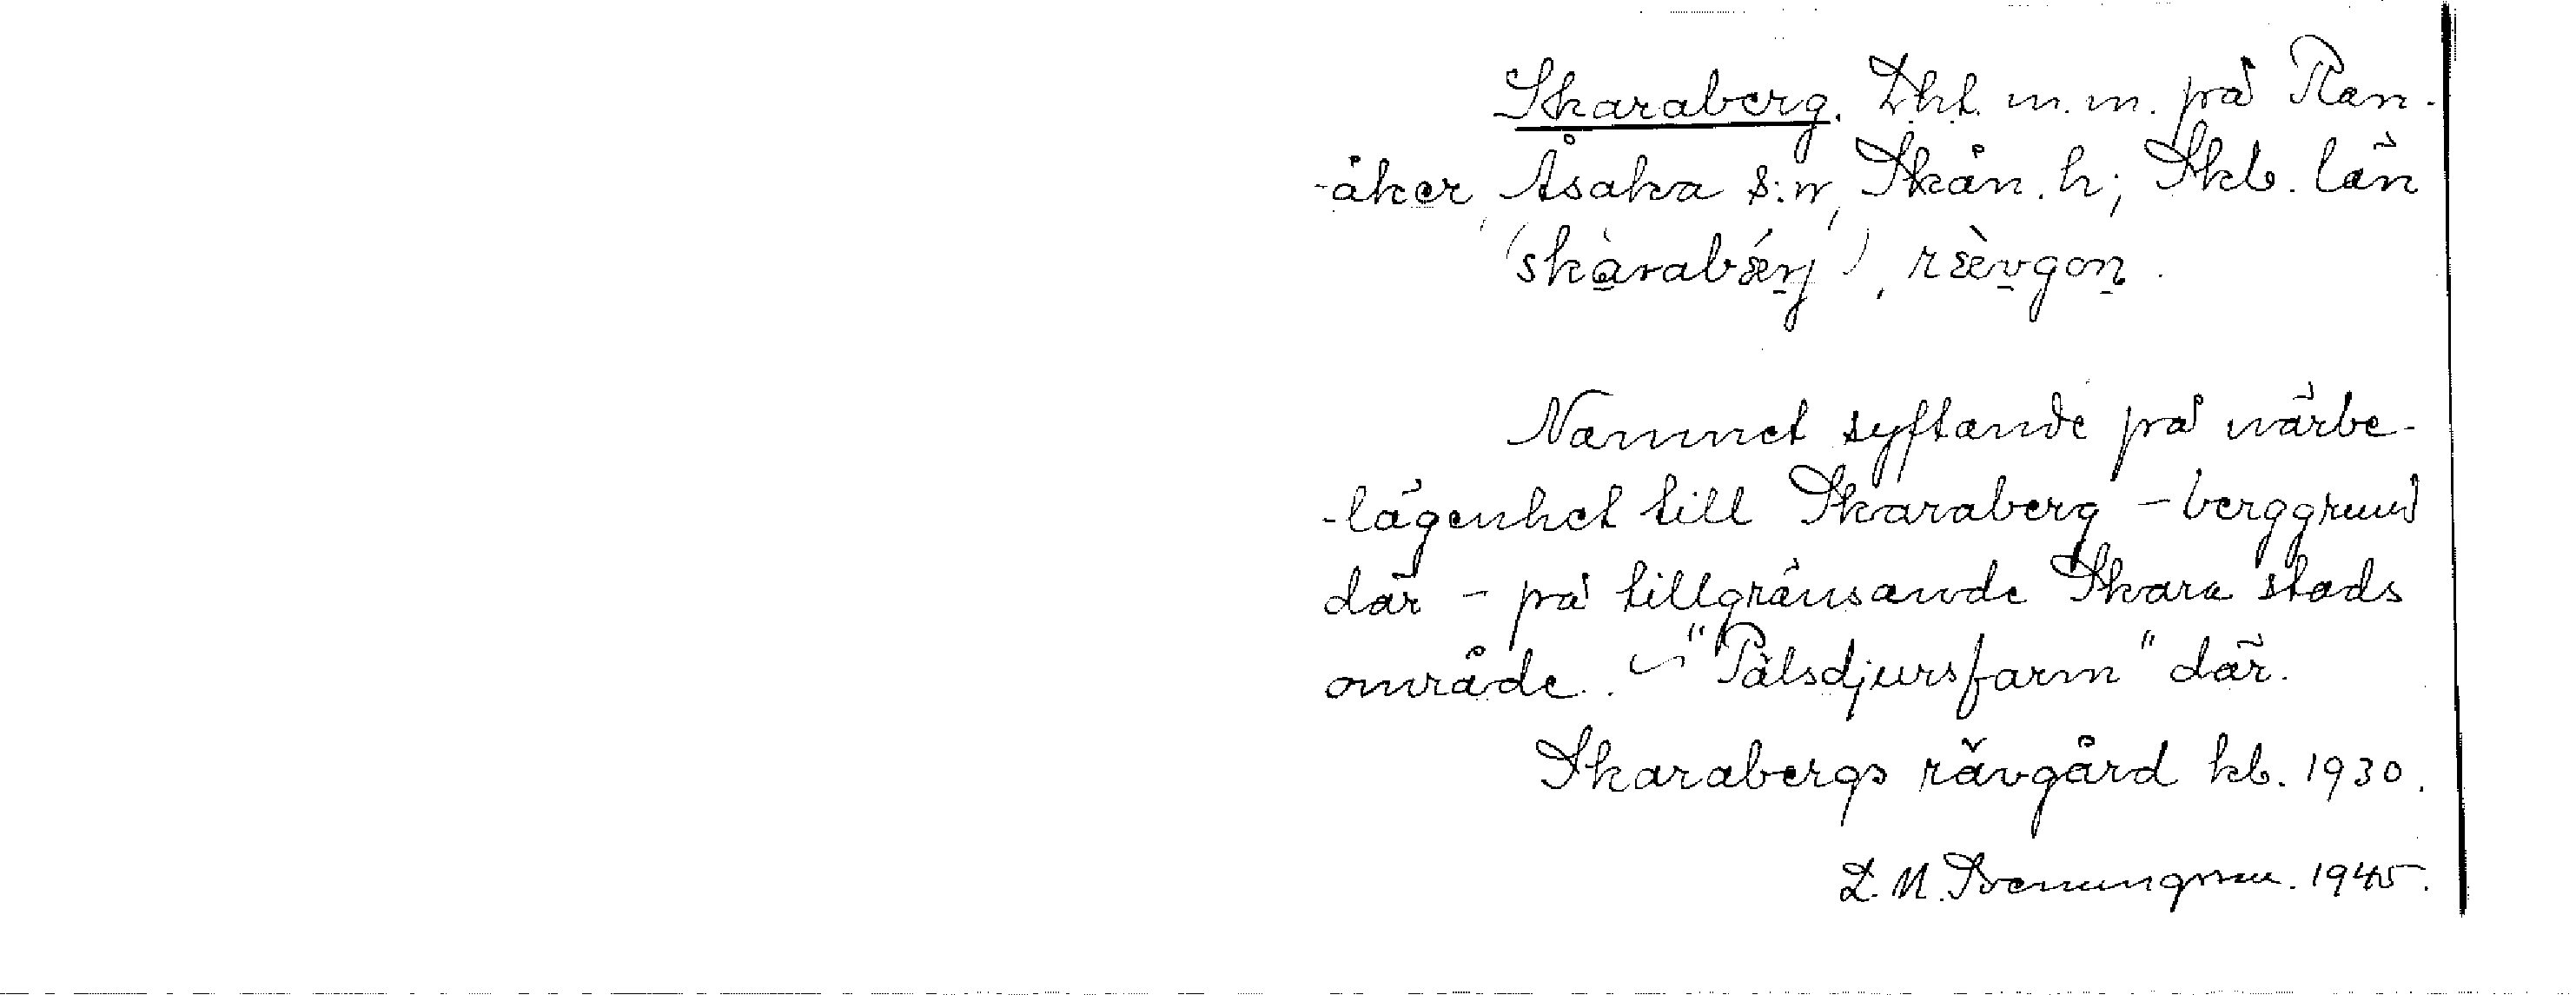 Skaraberg. Lht. m.m. på Ran-
-åker, Åsaka s:n, Skån. h; Skb. län
(skàrabǽrj), rævgon.
Namnet syftande på närbe-
-lägenhet till Skaraberg – berggrund
där – på tillgränsande Skara stads
område. ~ "Pälsdjursfarm" där.
Skarabergs rävgård kb. 1930.
L. M. Svenungsson. 1945.